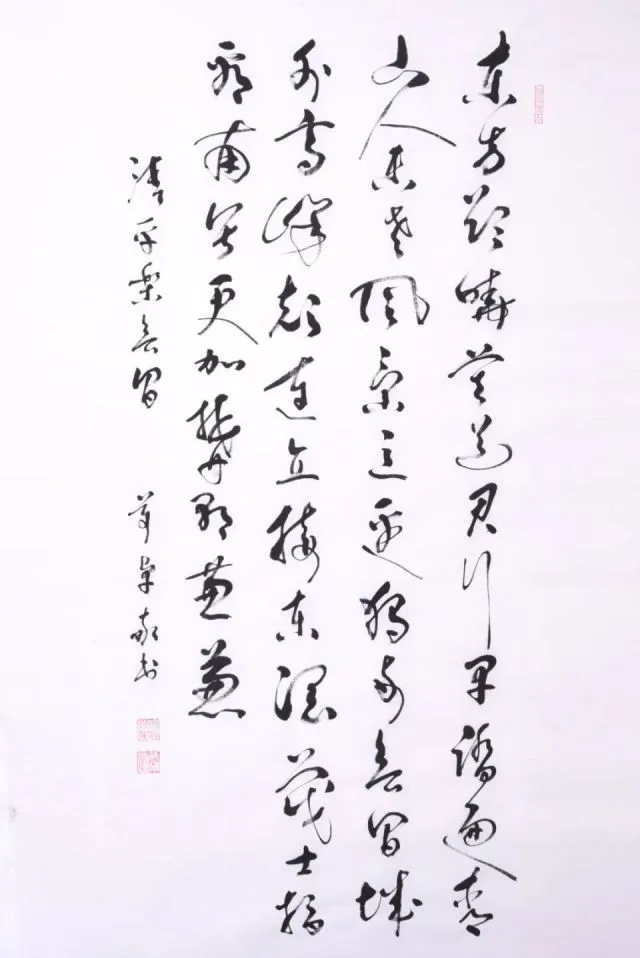 东方欲晓莫道君行早踏遍青
山人未老风景这边独好会昌城
外高峰颠连直接东溟战士指
看南粤更加郁郁葱葱
清平乐会昌
草敬书